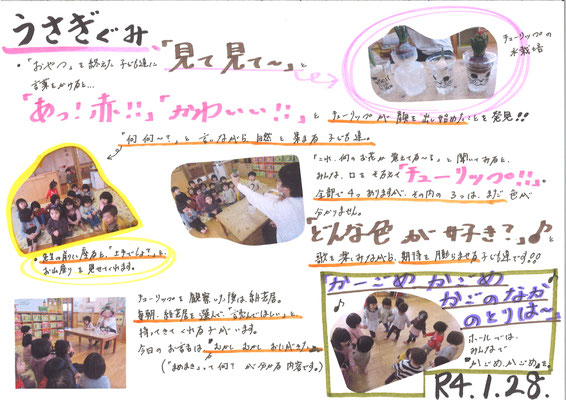 うさぎぐみ
チューリップの
水栽培
・「おやつ」を終えた子ども達に「見て見て〜」と
言葉をかけると…
「あっ!赤!!」「かわいい!!」と チューリップが顔を出し始めたことを発見!!
「何何〜?」と言いながら自然と集まる子ども達。
「これ、何のお花か覚えてる〜?」と聞いてみると、
みんな、口をそろえて「チューリップ!!」。
全部で4つありますが、その内の3つは、まだ色が
分かりません。
「どんな色が好き?」♪と
歌を楽しみながら、期待を膨らませる子ども達です。
・先生の前に座ると、「上手でしょ?」と、
お山座りを見せてくれます。
チューリップを観察した後は紙芝居。
毎朝、紙芝居を選んで「読んでほしい」と
持ってきてくれる子がいます。
今日のお話は「むかしむかしおにがきた」
(「まめまき」って何?が分かる内容です。)
「かーごめ かごめ
かごのなかの
のとりは〜」
ホールでは、
みんなで
"かごめかごめ"を。
R4.1.28.